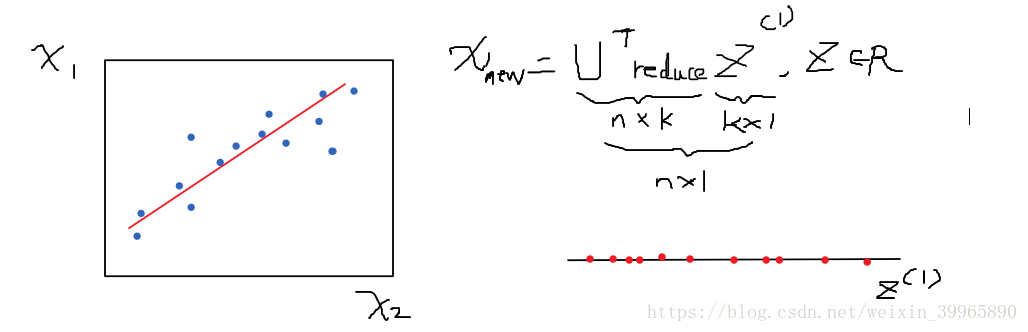 x₁
x₂
xₙₑw = Uᵀreduce z⁽¹⁾, z ∈ R
n×k k×1
n×1
z⁽¹⁾
https://blog.csdn.net/weixin_39965890